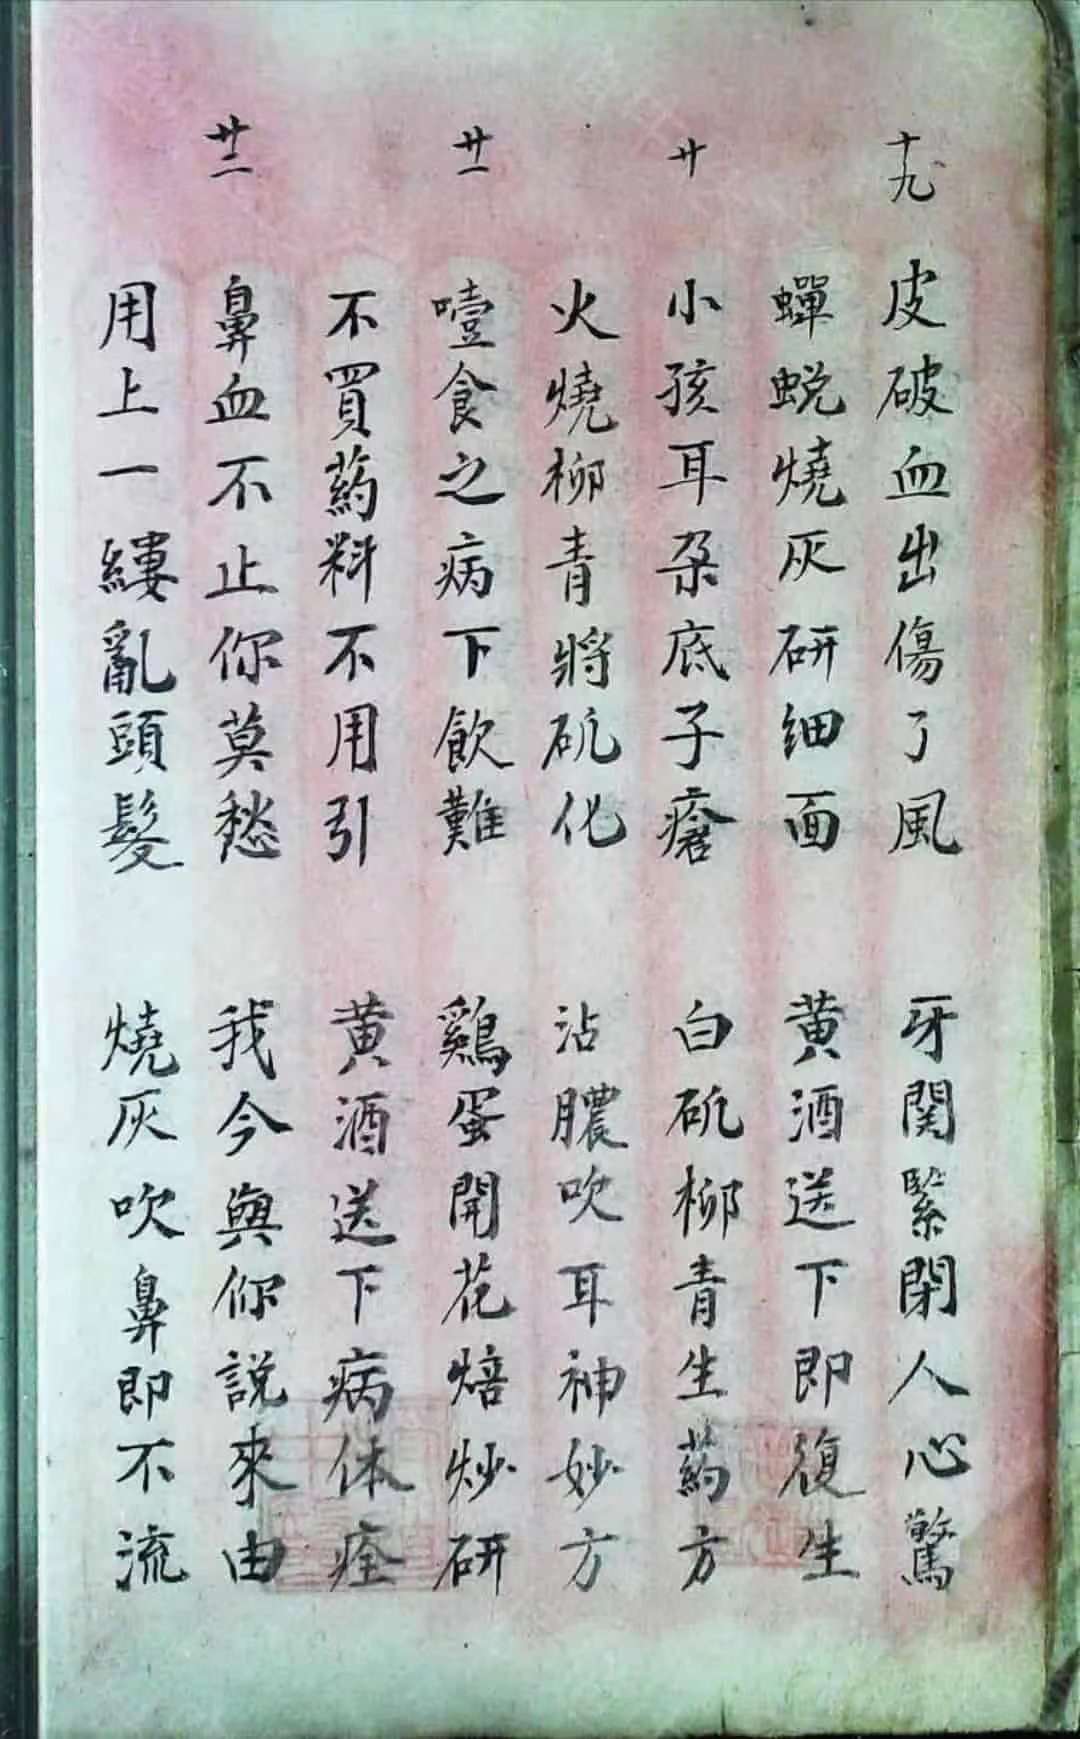 十九
皮破血出傷了風 牙関緊閉人心驚
蟬蜕燒灰研细面 黄酒送下即復生
廿
小孩耳朶底子瘡 白矾柳青生药方
火燒柳青將矾化 沾膿吹耳神妙方
廿一
噎食之病下飲難 鷄蛋開花焙炒研
不買药料不用引 黄酒送下病体痊
廿二
鼻血不止你莫愁 我今與你説來由
用上一縷亂頭髮 燒灰吹鼻即不流